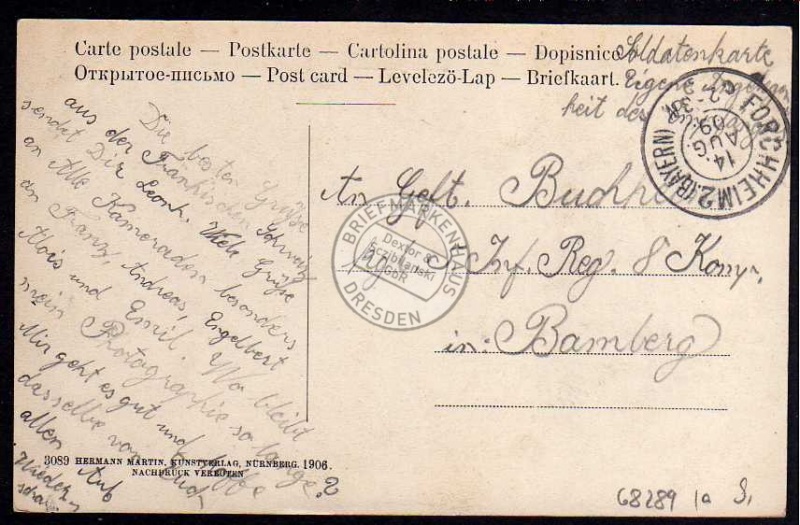 Carte postale — Postkarte — Cartolina postale — Dopisnice
Открытое-письмо — Post card — Levelező-Lap — Briefkaart.
Soldatenkarte
Eigene Angelegen
heit des
FORCHHEIM 2. (BAYERN)
14
AUG.
09
Die besten Grüße
aus der Fränkischen Schweiz
sendet Dir Leonh. Viele Grüße
an Alle Kameraden besonders
an Franz, Andreas, Engelbert
Alois und Emil. Wo bleibt
mein Photographie so lange?
Mir geht es gut und hoffe
dasselbe von Euch
allen Auf
Wieder-
schau.
An Gefr. Buchh
5. Inf. Reg. 8 Komp.
in: Bamberg
BRIEFMARKENHAUS
Dextor &
Sczibilanski
GbR
DRESDEN
3089 HERMANN MARTIN, KUNSTVERLAG, NÜRNBERG. 1906.
NACHDRUCK VERBOTEN
68289 1a S,